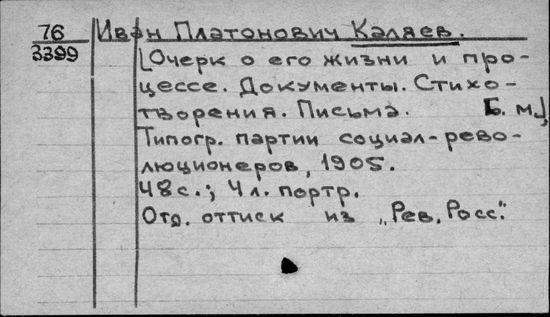 76 Иван Платонович Каляев.
3399 [Очерк о его жизни и про-
цессе. Документы. Стихо-
творения. Письма. Б. м.],
Типогр. партии социал-рево-
люционеров, 1905.
48 с.; 4 л. портр.
Отд. оттиск из „Рев. Росс."